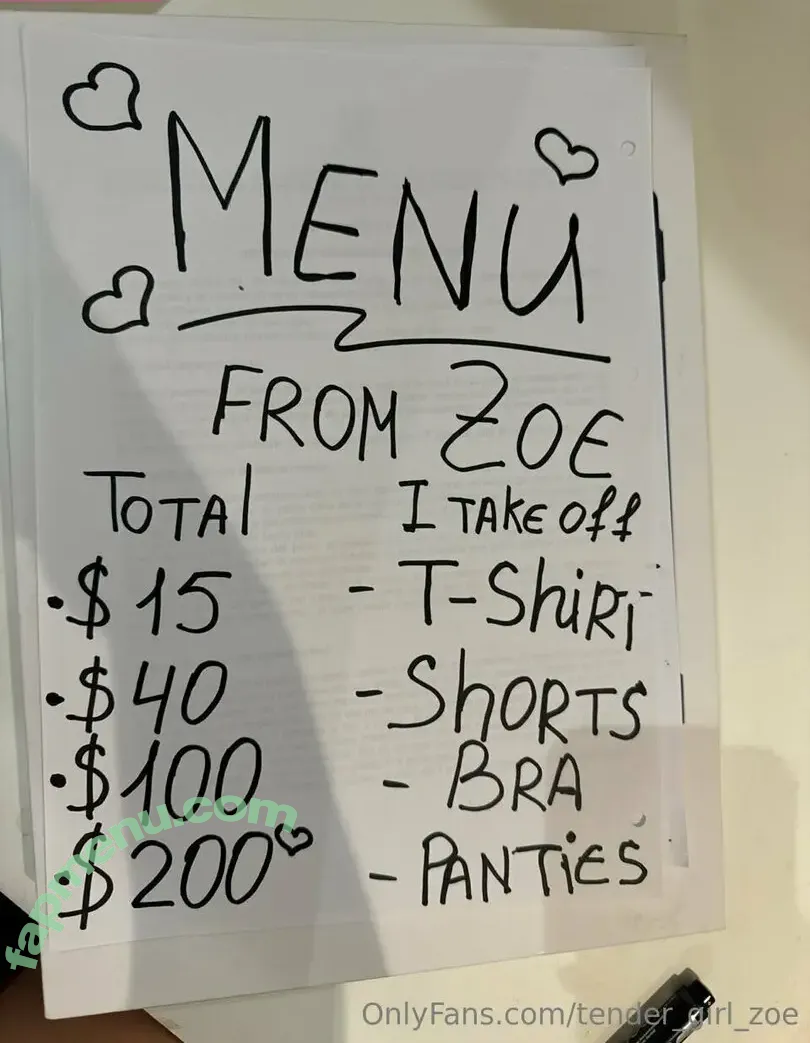 MENU
FROM ZOE
TOTAL I TAKE OFF
·$15 - T-ShiRT
·$40 - ShORTS
·$100 - BRA
·$200 - PANTiES
fapmenu.com
OnlyFans.com/tender_girl_zoe